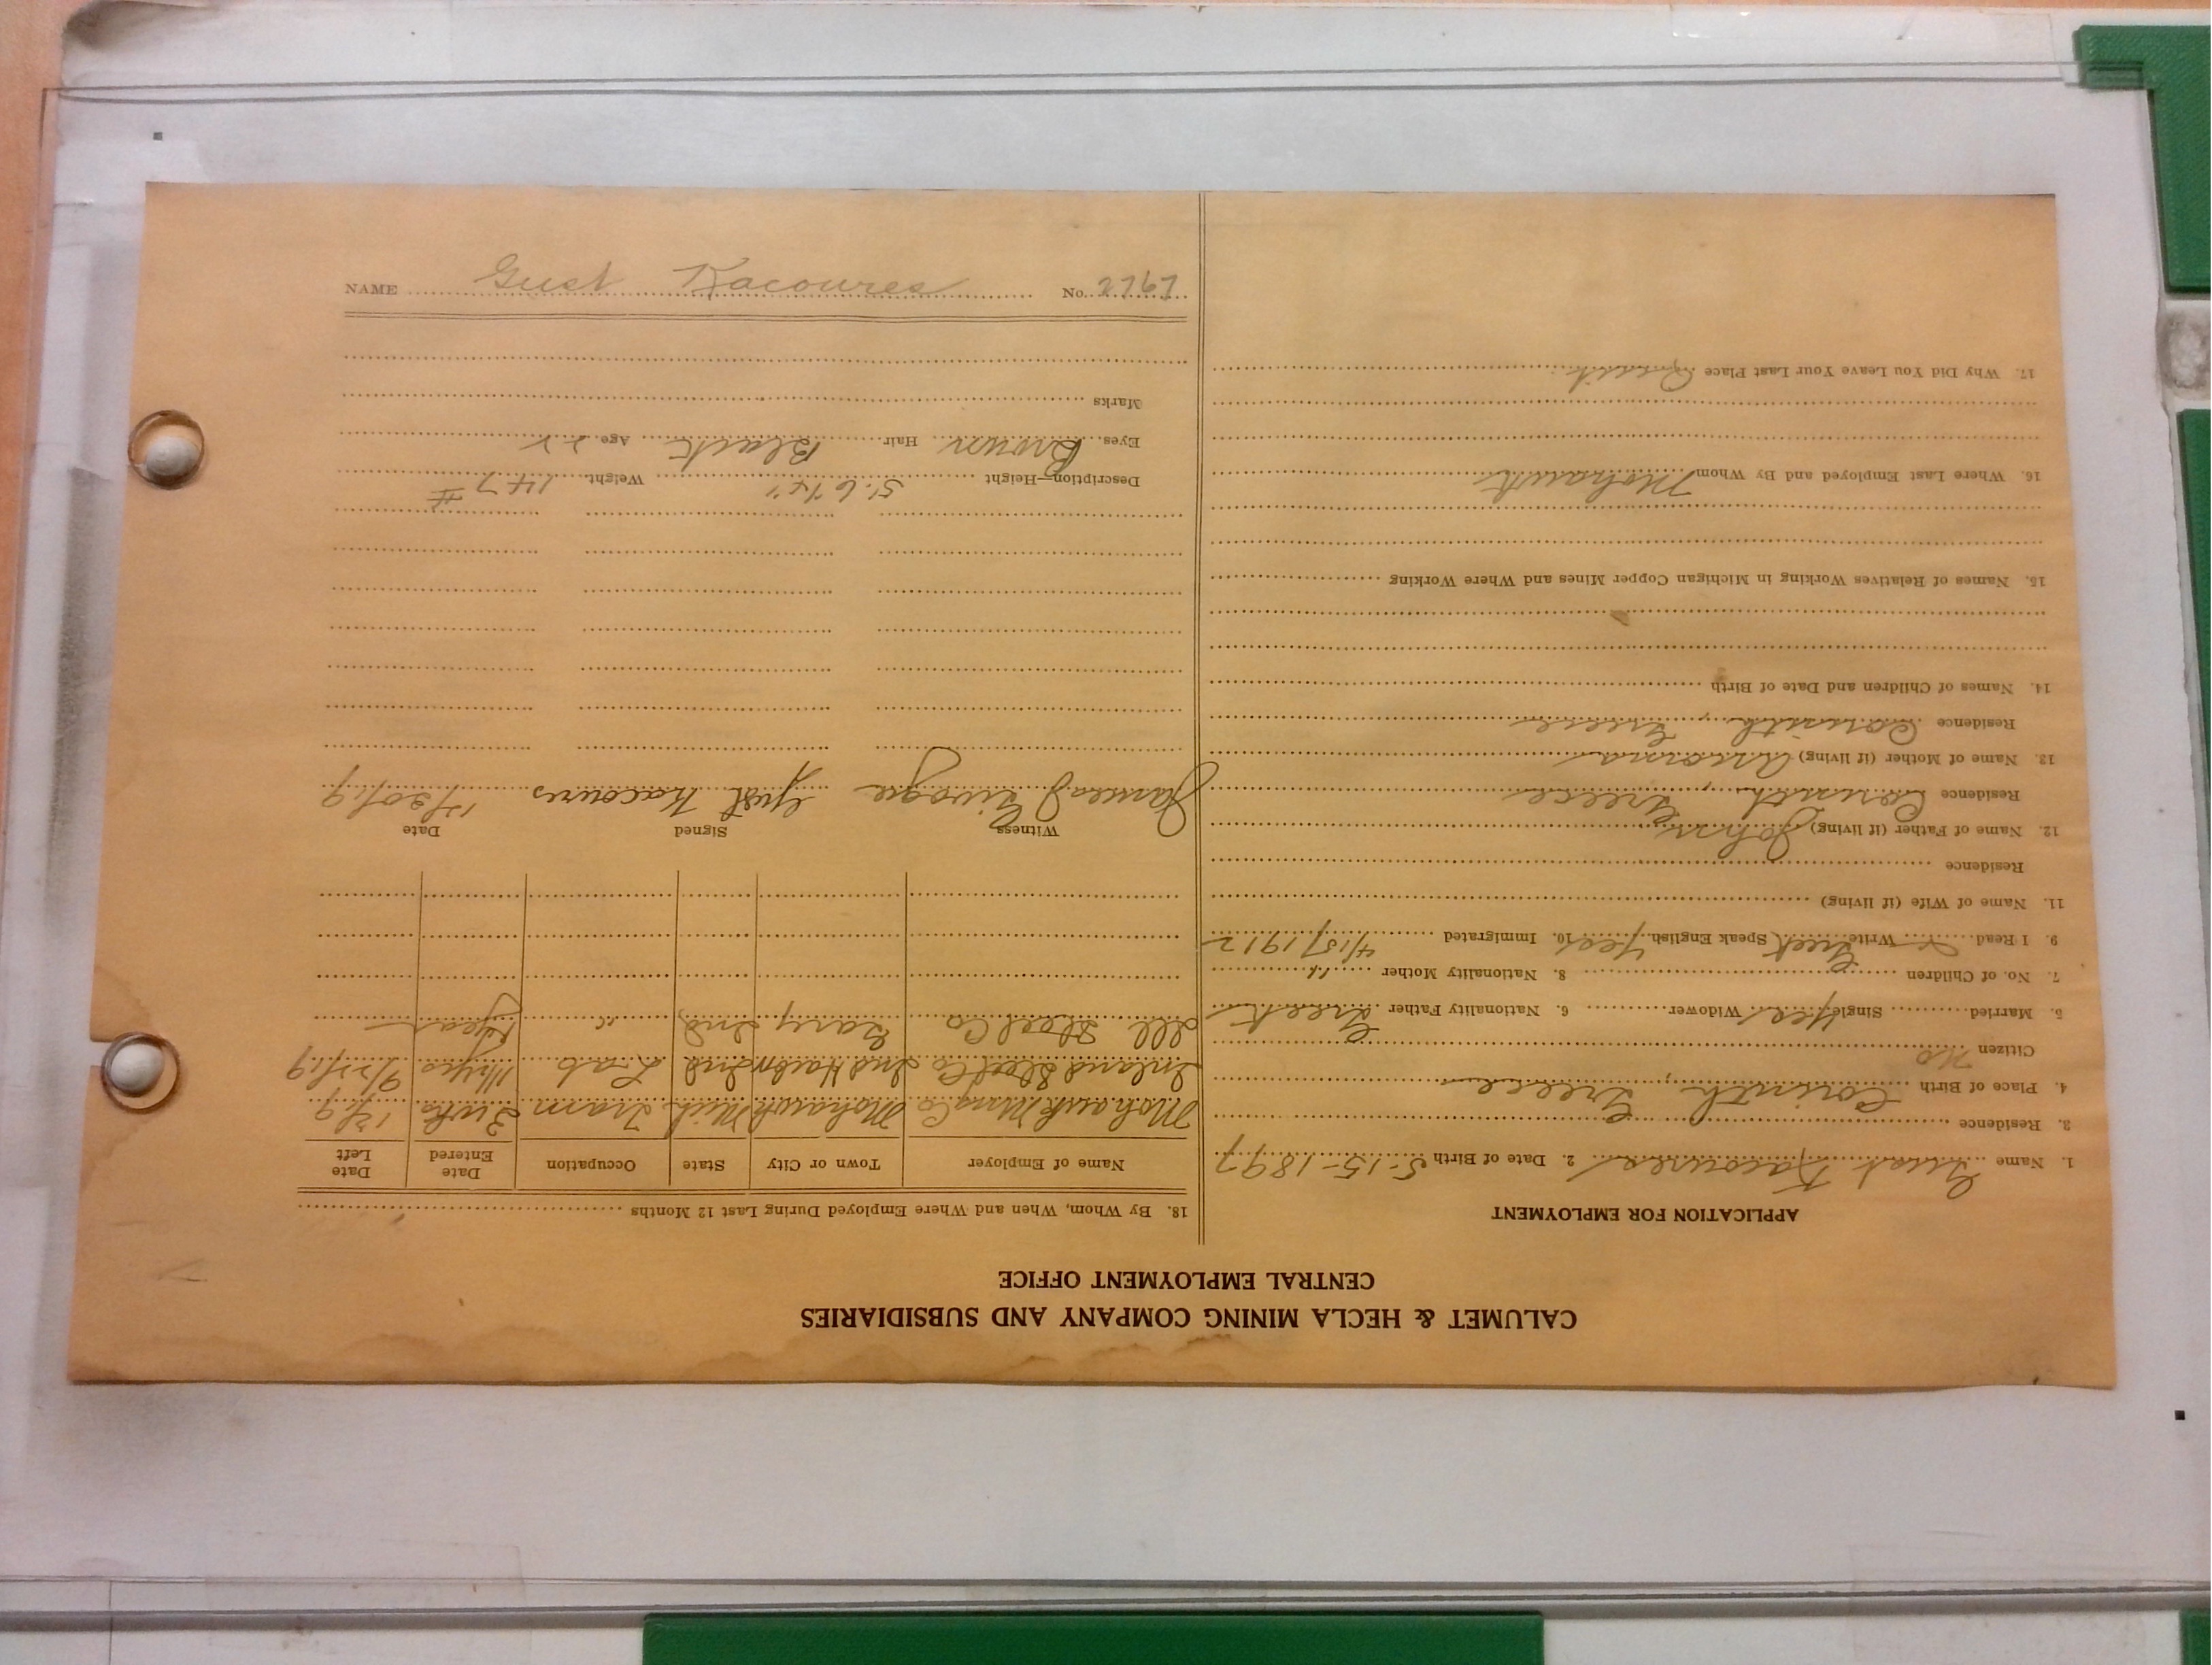 CALUMET & HECLA MINING COMPANY AND SUBSIDIARIES
CENTRAL EMPLOYMENT OFFICE
APPLICATION FOR EMPLOYMENT
1. Name Gust Kacoures 2. Date of Birth 5-15-1897
3. Residence
4. Place of Birth Corinth, Greece
Citizen No
5. Married Single Yes Widower 6. Nationality Father Greek
7. No. of Children 8. Nationality Mother "
9. I Read Write Greek Speak English Yes 10. Immigrated 4/15/1912
11. Name of Wife (if living)
Residence
12. Name of Father (if living) John
Residence Corinth, Greece
13. Name of Mother (if living)
Residence Corinth, Greece
14. Names of Children and Date of Birth
15. Names of Relatives Working in Michigan Copper Mines and Where Working
16. Where Last Employed and By Whom Mohawk
17. Why Did You Leave Your Last Place
18. By Whom, When and Where Employed During Last 12 Months
Name of Employer Town or City State Occupation Date Entered Date Left
Mohawk Mng Co Mohawk Mich Tram
Inland Steel Co Ind Harbor Ind Lab 9/22/19
Ill Steel Co Gary Ind " 1 year
Witness Signed Date
James J Gust Kacoures
Description—Height 5' 6 1/4" Weight 147 #
Eyes Brown Hair Black Age 22
Marks
NAME Gust Kacoures No. 2767